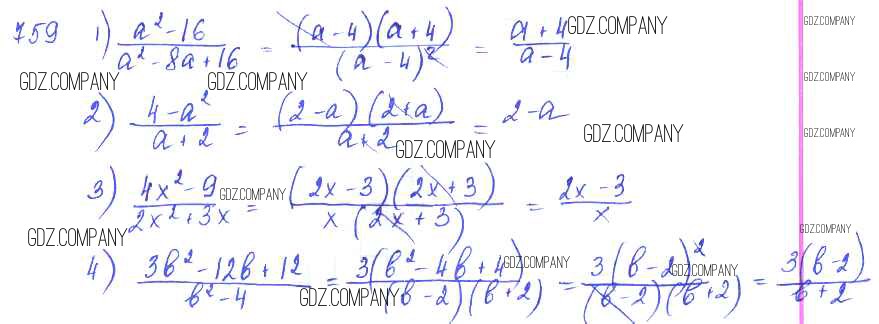 759 1) (a² - 16)/(a² - 8a + 16) = (a - 4)(a + 4)/(a - 4)² = (a + 4)/(a - 4) GDZ.COMPANY GDZ.COMPANY
GDZ.COMPANY GDZ.COMPANY GDZ.COMPANY
2) (4 - a²)/(a + 2) = (2 - a)(2 + a)/(a + 2) = 2 - a GDZ.COMPANY GDZ.COMPANY
GDZ.COMPANY
3) (4x² - 9)/(2x² + 3x) = (2x - 3)(2x + 3)/x(2x + 3) = (2x - 3)/x GDZ.COMPANY
GDZ.COMPANY GDZ.COMPANY
4) (3b² - 12b + 12)/(b² - 4) = 3(b² - 4b + 4)/(b - 2)(b + 2) = 3(b - 2)²/(b - 2)(b + 2) = 3(b - 2)/(b + 2) GDZ.COMPANY GDZ.COMPANY
GDZ.COMPANY